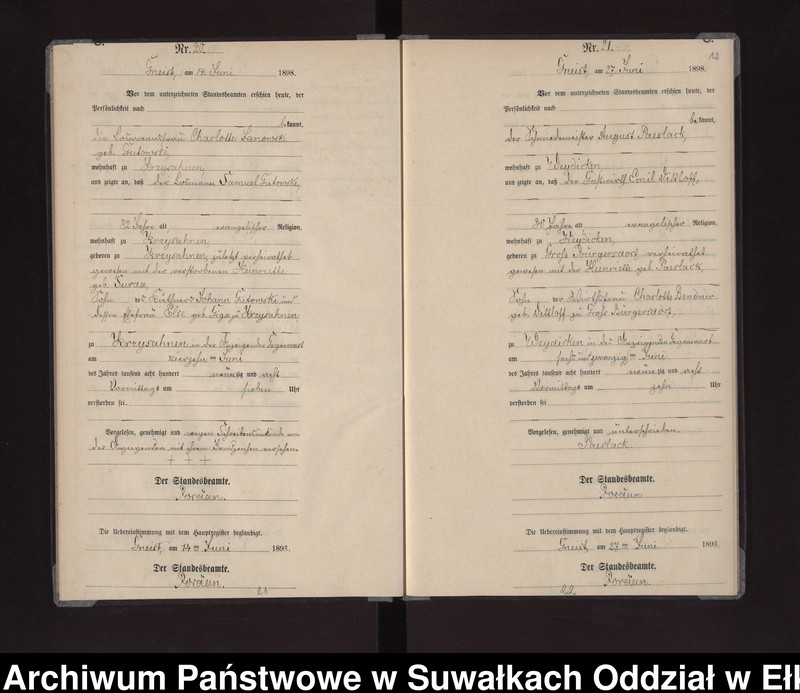 C.
Nr. 20.
Gneist, am 14. Juni 1898.
Vor dem unterzeichneten Standesbeamten erschien heute, der
Persönlichkeit nach
bekannt,
die Losmannsfrau Charlotte
geb.
wohnhaft zu Krzysahnen,
und zeigte an, daß der Losmann Samuel
82 Jahre alt, evangelischer Religion,
wohnhaft zu Krzysahnen
geboren zu Krzysahnen, zuletzt verheirathet
gewesen mit der verstorbenen Henriette
geb.
Sohn des Johann und
dessen Ehefrau geb. zu Krzysahnen,
zu Krzysahnen in der Anzeigenden Gegenwart
am vierzehn ten Juni
des Jahres tausend acht hundert neunzig und acht
Vormittags um sieben Uhr
verstorben sei.
Vorgelesen, genehmigt und wegen Schreibensunkunde von
der Anzeigenden mit ihrem Handzeichen versehen.
+ + +
Der Standesbeamte.
Die Uebereinstimmung mit dem Hauptregister beglaubigt.
Gneist, am 14ten Juni 1898.
Der Standesbeamte.
21
C.
13
Nr. 21.
Gneist, am 27. Juni 1898.
Vor dem unterzeichneten Standesbeamten erschien heute, der
Persönlichkeit nach
bekannt,
der Schmiedemeister August Paerlack,
wohnhaft zu Weydicken
und zeigte an, daß der Gastwirth Emil Dittloff,
30 Jahre alt, evangelischer Religion,
wohnhaft zu Weydicken,
geboren zu Gross Bürgersdorf, verheirathet
gewesen mit der Henriette geb. Paerlack,
Sohn der Wirthsfrau Charlotte Bendner
geb. Dittloff zu Gross Bürgersdorf,
zu Weydicken in des Anzeigenden Gegenwart
am sechsundzwanzigsten Juni
des Jahres tausend acht hundert neunzig und acht
Vormittags um zehn Uhr
verstorben sei
Vorgelesen, genehmigt und unterschrieben.
Paerlack.
Der Standesbeamte.
Die Uebereinstimmung mit dem Hauptregister beglaubigt.
Gneist, am 27ten Juni 1898
Der Standesbeamte.
22
Archiwum Państwowe w Suwałkach Oddział w Ełk